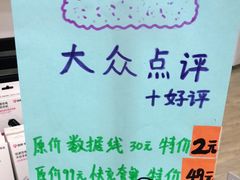 大众点评
+好评
原价 数据线 30元 特价 2元
原价99元 快充套装 特价 49元